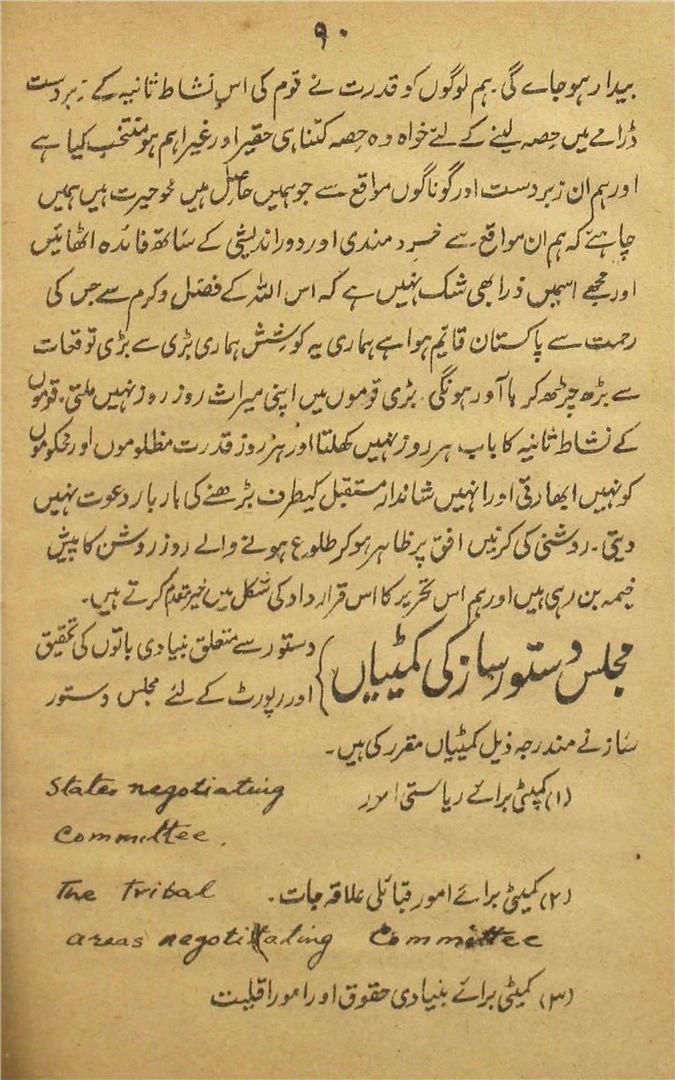 ۹۰
بیدار ہوجاے گی۔ ہم لوگوں کو قدرت نے قوم کی اس نشاط ثانیہ کے زبردست
ڈرامے میں حصہ لینے کے لئے خواہ وہ حصہ کتنا ہی حقیر اور غیر اہم ہو منتخب کیا ہے
اور ہم ان زبردست اور گوناگوں مواقع سے جو ہمیں حاصل ہیں محو حیرت ہیں ہمیں
چاہئے کہ ہم ان مواقع سے خرد مندی اور دور اندیشی کے ساتھ فائدہ اٹھائیں
اور مجھے اسمیں ذرا بھی شک نہیں ہے کہ اس اللہ کے فضل و کرم سے جس کی
رحمت سے پاکستان قائم ہوا ہے ہماری یہ کوشش ہماری بڑی سے بڑی توقعات
سے بڑھ چڑھ کر بار آور ہونگی۔ بڑی قوموں میں اپنی میراث روز روز نہیں ملتی۔ قوموں
کے نشاط ثانیہ کا باب ہر روز نہیں کھلتا اور ہر روز قدرت مظلوموں اور محکوموں
کو نہیں ابھارتی اور انہیں شاندار مستقبل کیطرف بڑھنے کی بار بار دعوت نہیں
دیتی۔ روشنی کی کرنیں افق پر ظاہر ہوکر طلوع ہونے والے روز روشن کا پیش
خیمہ بن رہی ہیں اور ہم اس تحریر کا اس قرارداد کی شکل میں خیر مقدم کرتے ہیں۔
مجلس دستور ساز کی کمیٹیاں } دستور سے متعلق بنیادی باتوں کی تحقیق
اور رپورٹ کے لئے مجلس دستور
ساز نے مندرجہ ذیل کمیٹیاں مقرر کی ہیں۔
(۱) کمیٹی برائے ریاستی امور States negotiating
Committee.
(۲) کمیٹی برائے امور قبائلی علاقہ جات۔ The Tribal
areas negotiating Committee
(۳) کمیٹی برائے بنیادی حقوق اور امور اقلیت